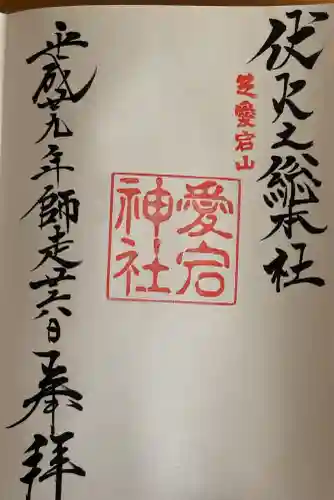 伏火之総本社
芝愛宕山
愛宕
神社
平成廿九年師走廿六日
奉拝